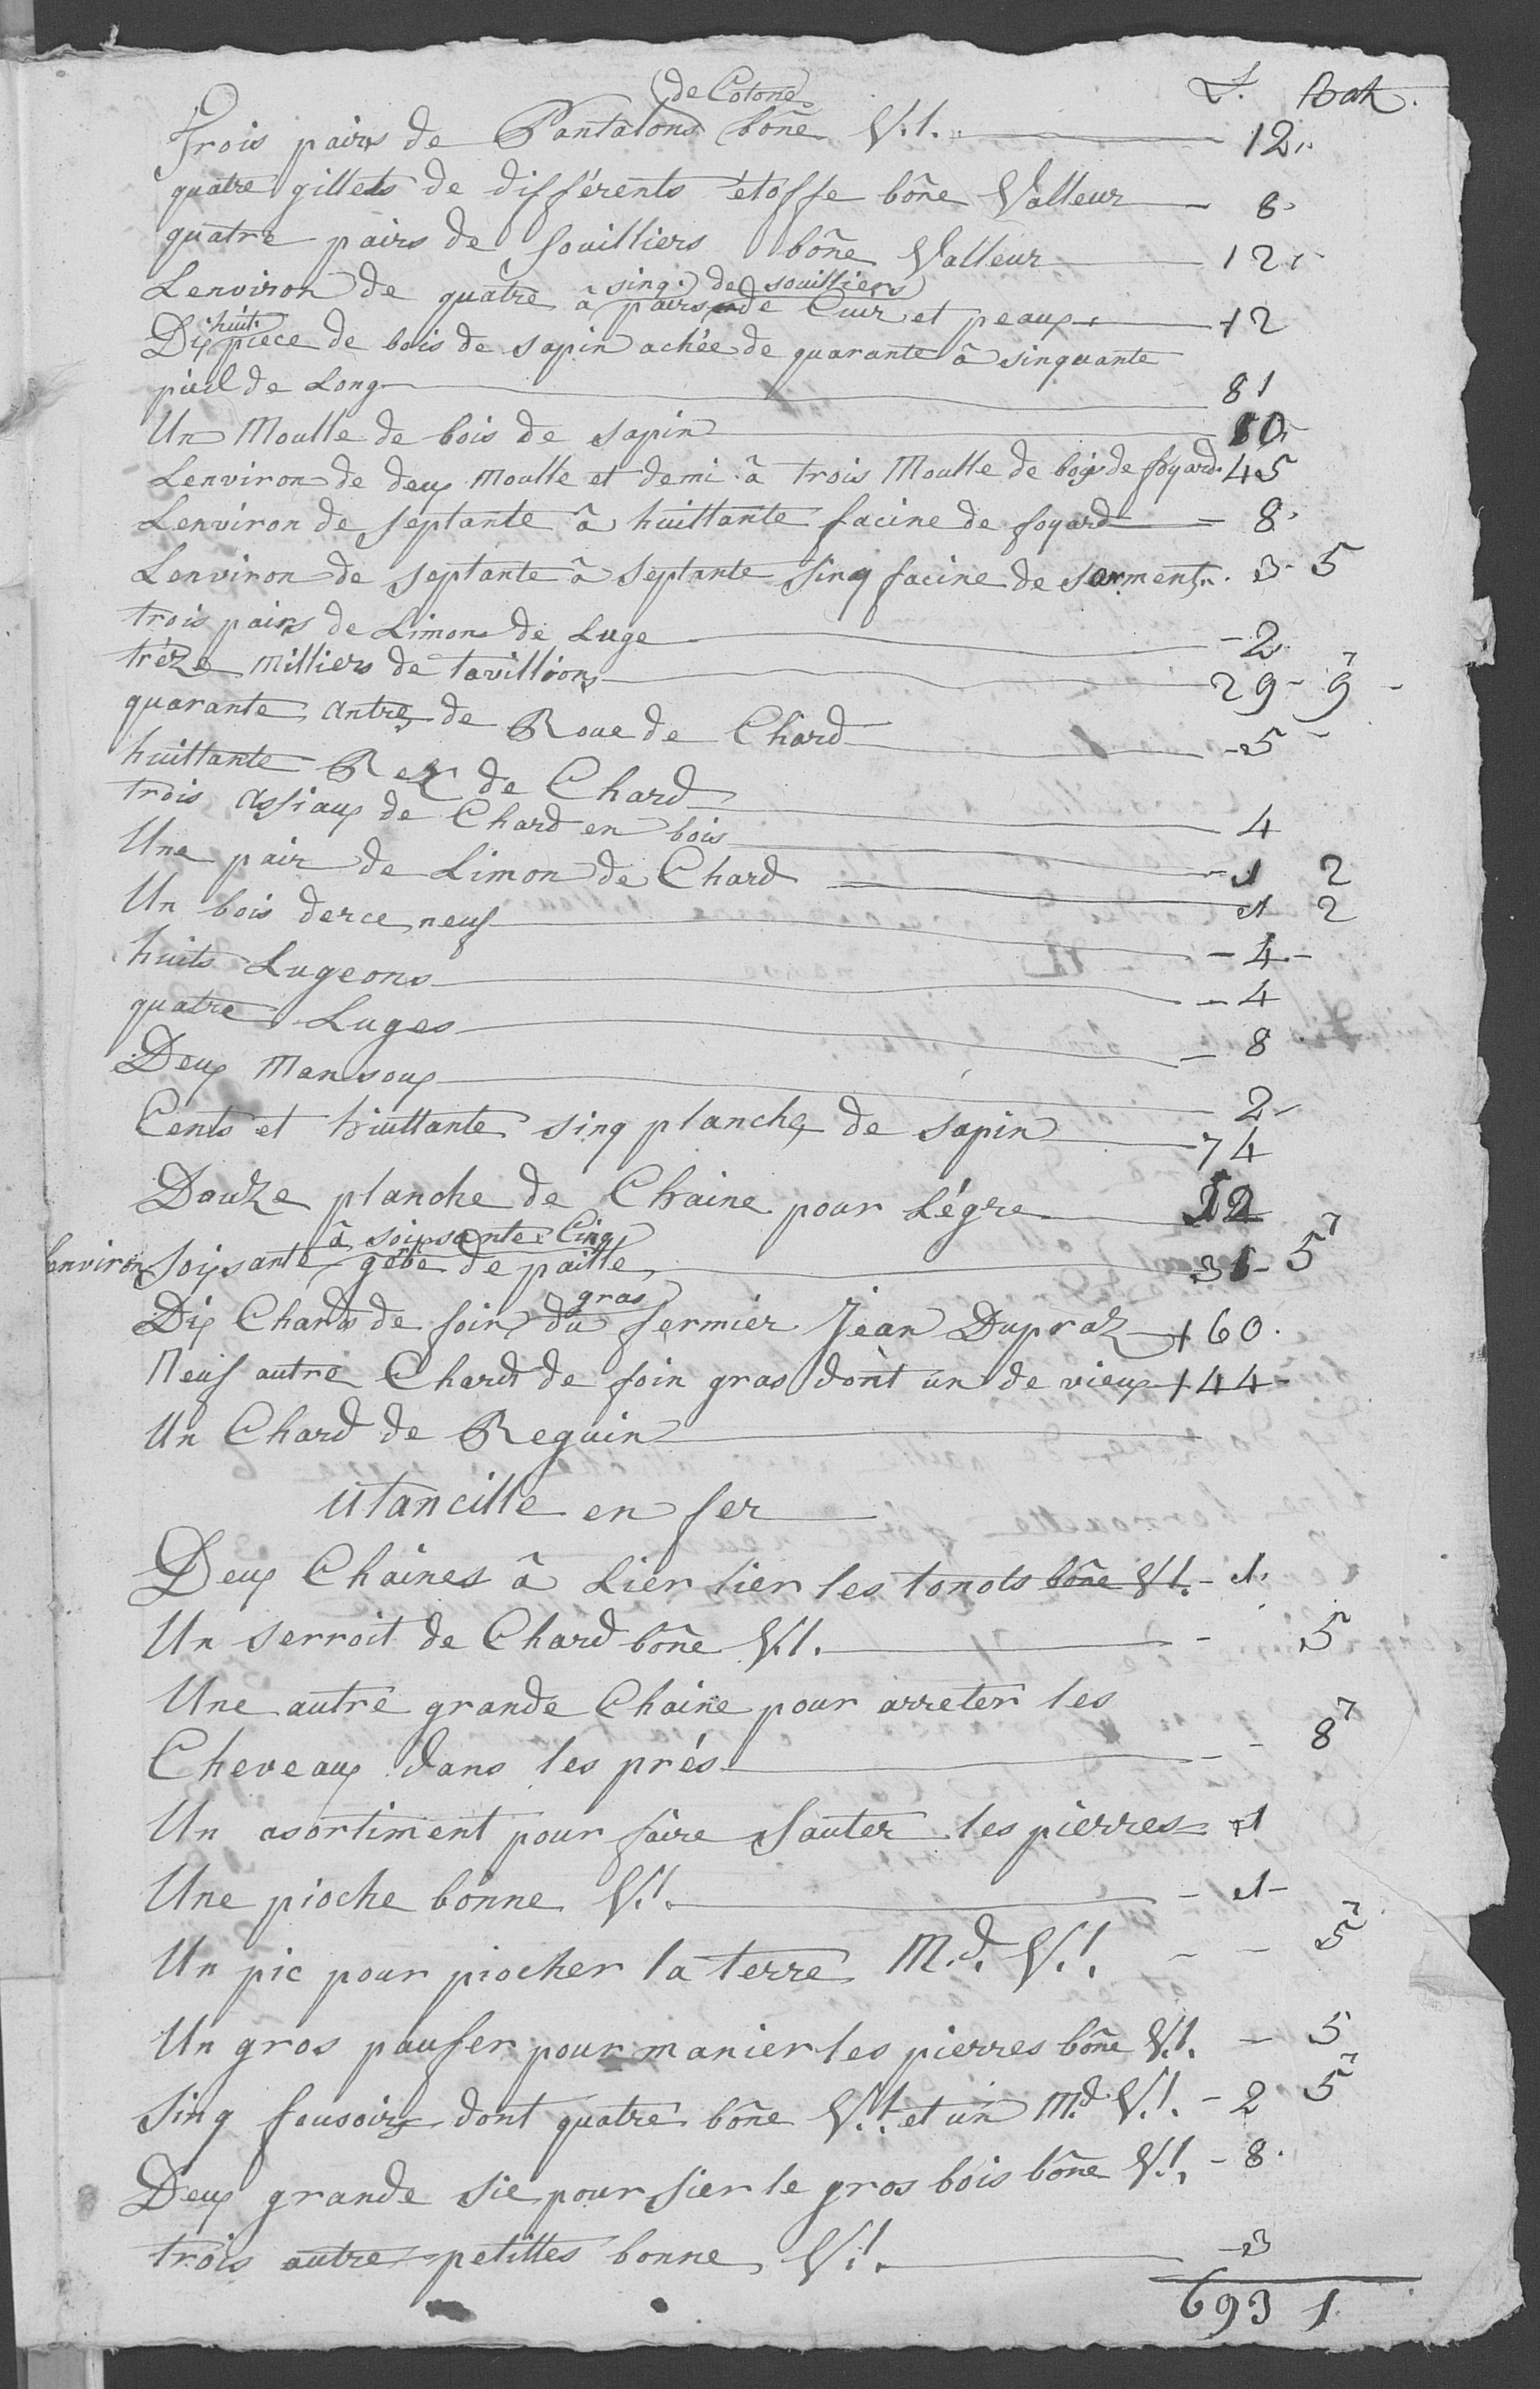 L. Batz.
Trois pairs de Pantalons de Cotone bône V.l. 12
quatre gillets de différents étoffe bône Valleur 8
quatre pairs de souilliers bône Valleur 12
Lenviron de quatre à sinq pairs de souilliers de Cuir et peaux 12
Dix huit piece de bois de sapin achée de quarante â sinquante
pied de Long 81
Un Moulle de bois de sapin 10
Lenviron de deux moulle et demi â trois Moulle de bois de foyard 45
Lenviron de septante â huittante facine de foyard 8
Lenviron de septante â septante sinq facine de sarments 3 5
trois pairs de Limons de Luge 2
tréze milliers de tavillions 29 9
quarante antres de Roue de Chard 5
huittante Rex de Chard 4
trois assiaux de Chard en bois 1 2
Une pair de Limon de Chard 1 2
Un bois derce neuf 4
huits Lugeons 4
quatre Luges 8
Deux Mansoux 2
Cents et huittante sinq planche de sapin 74
Douze planche de Chaine pour Légre 12
Lenviron soixsante â soixsante Cinq gèbe de paille 31 5
Dix Chards de foin gras du fermier Jean Dupraz 160
Neuf autre Chard de foin gras dont un de vieux 144
Un Chard de Reguin
Utancille en fer
Deux Chaines â Lier lier les tonots bône V.l. 1
Un serroit de Chard bône V.l. 5
Une autre grande Chaine pour arreter les
Cheveaux dans les prés 8
Un asortiment pour faire sauter les pierres 1
Une pioche bonne V.l. 1
Un pic pour piocher la terre M.d. V.l. 5
Un gros paufer pour manier les pierres bône V.l. 5
Sinq fousoirs dont quatre bône V.l. et un M.d V.l. 2 5
Deux grande sie pour sier le gros bois bône V.l. 8
trois autre petittes bonne V.l. 3
693 1